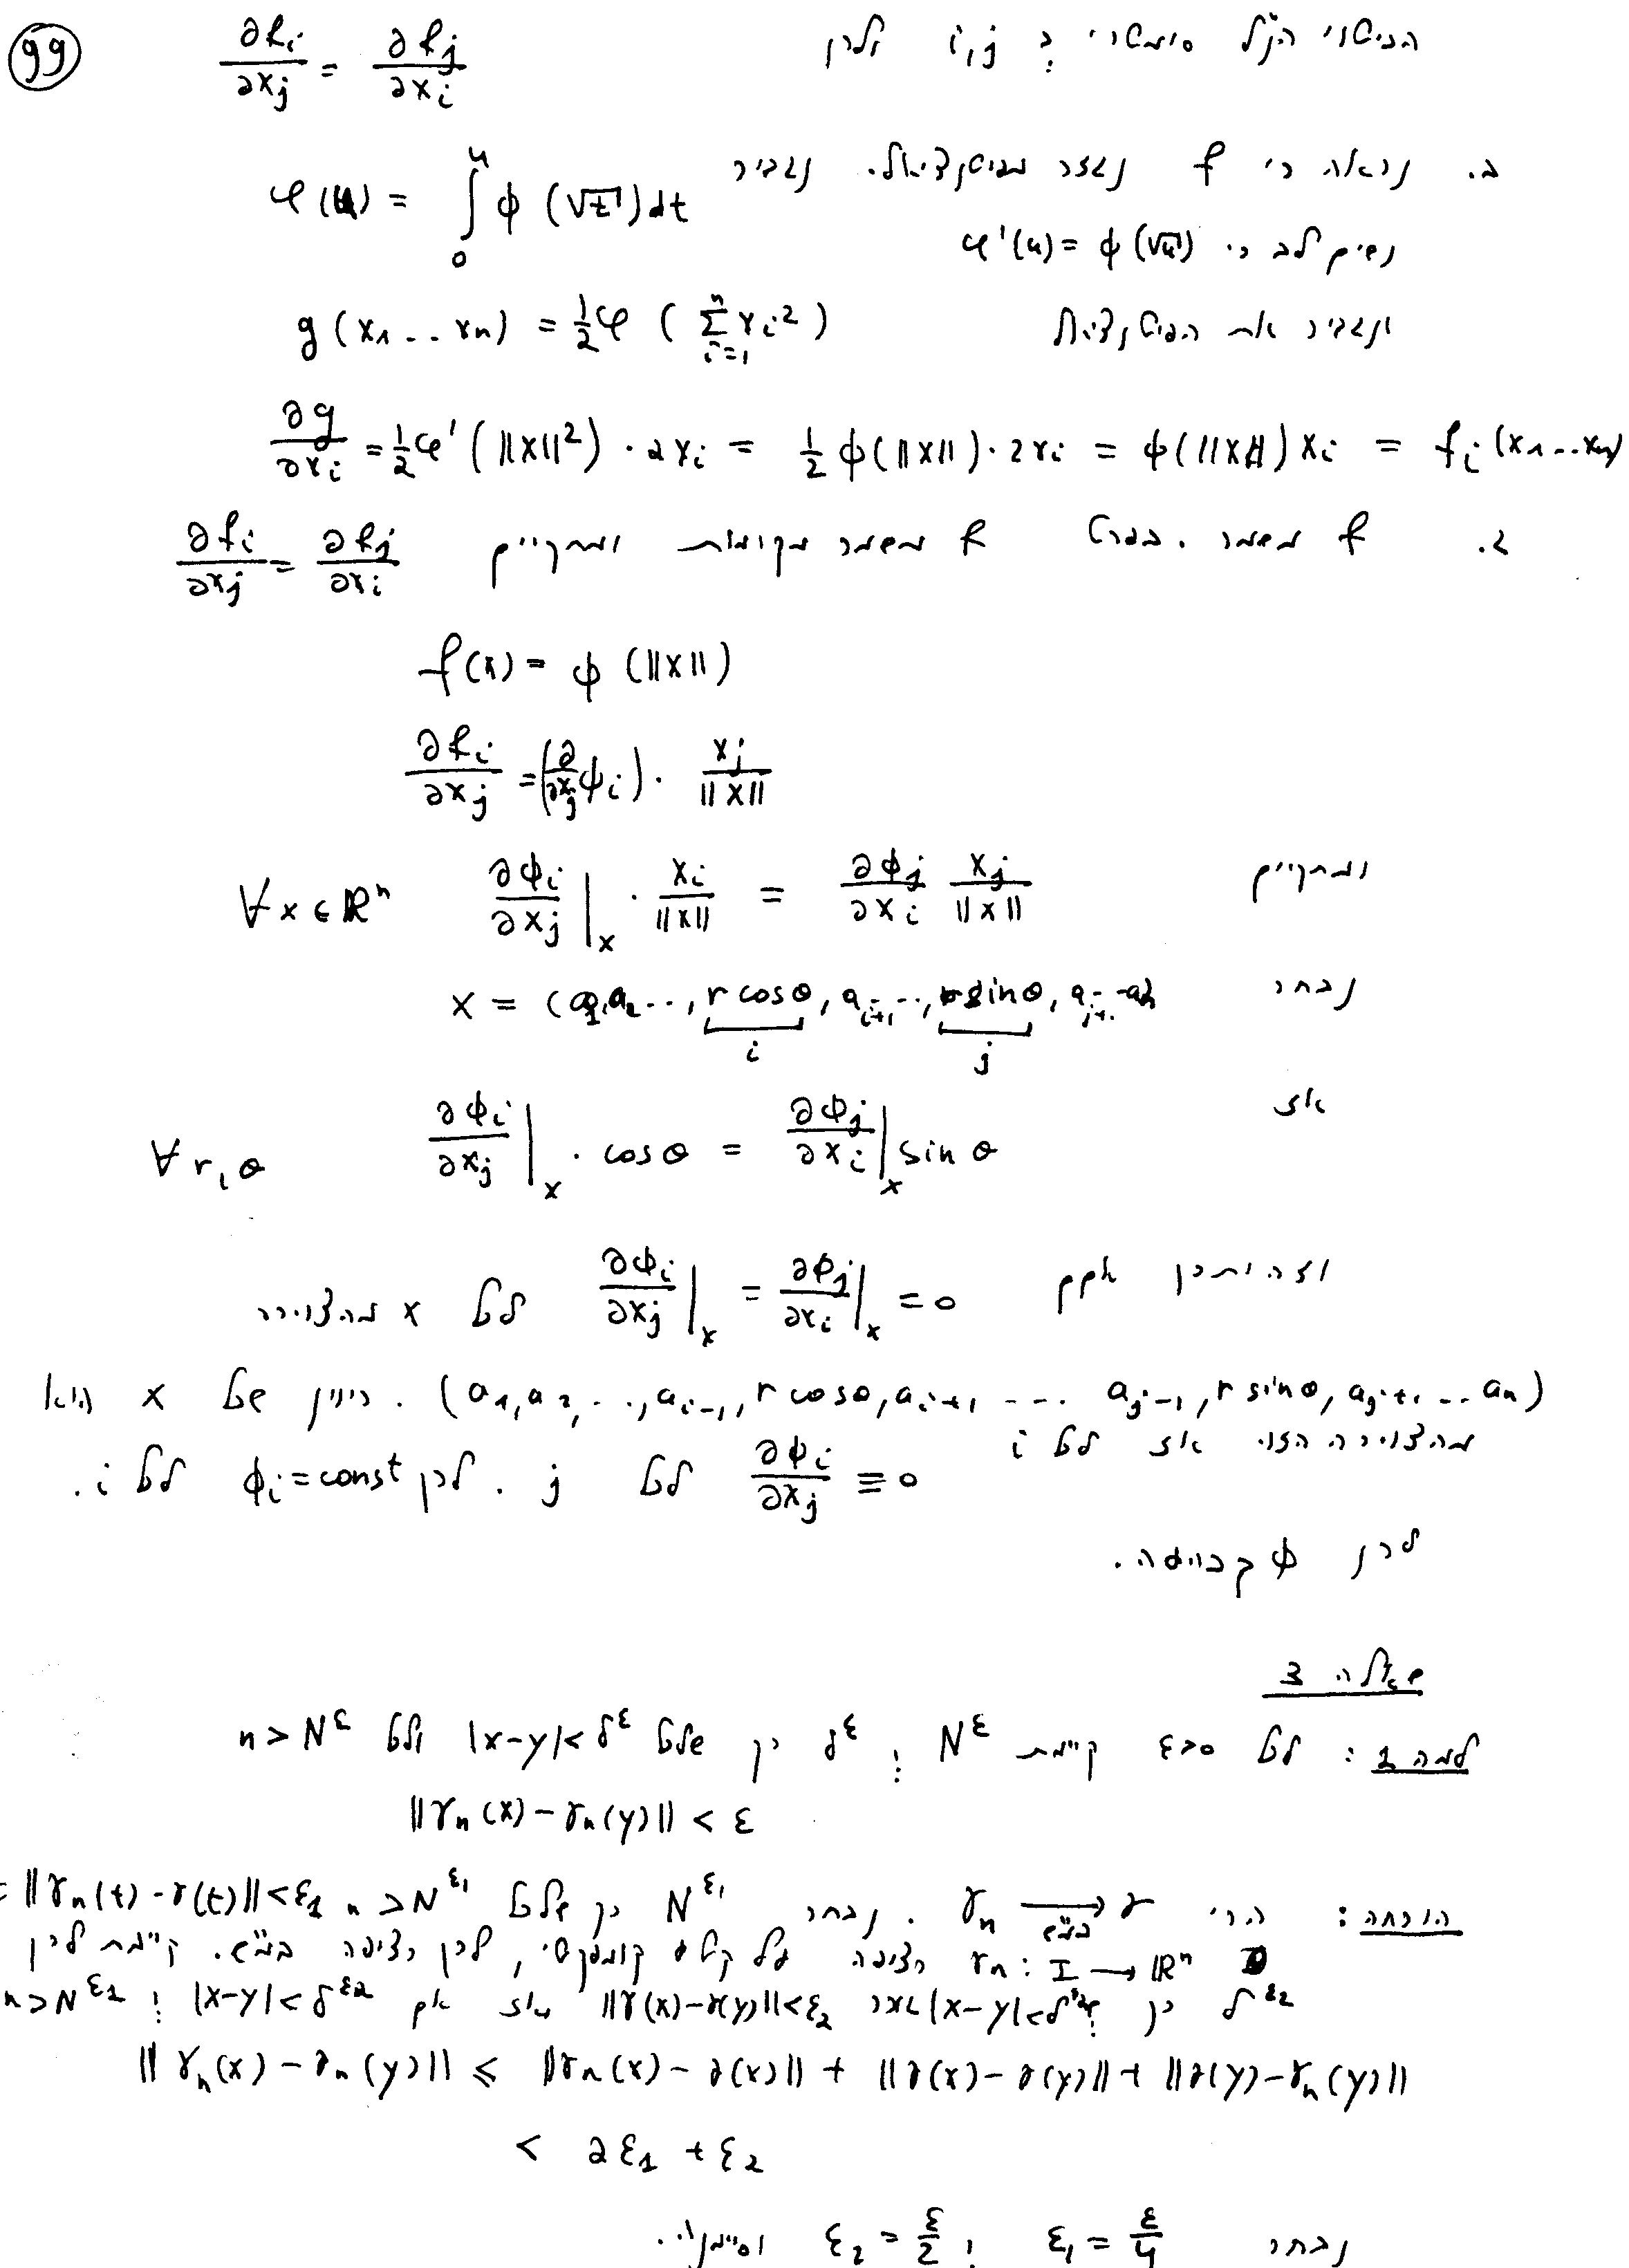 99
הביטוי הנ"ל סימטרי ב i,j ולכן ∂f_i/∂x_j = ∂f_j/∂x_i
ב. נראה כי f נגזר מפוטנציאל. נגדיר φ(u) = ∫_0^u ϕ(√t)dt
נשים לב כי φ'(u) = ϕ(√u)
ונגדיר את הפוטנציאל g(x_1...x_n) = ½φ(Σ_{i=1}^n x_i²)
∂g/∂x_i = ½φ'(||x||²)·2x_i = ½ϕ(||x||)·2x_i = ϕ(||x||)x_i = f_i(x_1...x_n)
ג. f משמר. בפרט f משמר מקומית ומתקיים ∂f_i/∂x_j = ∂f_j/∂x_i
f(x) = ϕ(||x||)
∂f_i/∂x_j = (∂/∂x_j ϕ_i)· x_j/||x||
ומתקיים ∂ϕ_i/∂x_j|_x · x_i/||x|| = ∂ϕ_j/∂x_i x_j/||x|| ∀x∈ℝ^n
נבחר x = (a_1,a_2..., r cosθ, a_{i+1}..., r sinθ, a_{j+1}...a_n)
i j
אז ∂ϕ_i/∂x_j|_x · cosθ = ∂ϕ_j/∂x_i|_x sinθ ∀r,θ
וזה יתכן אמם ∂ϕ_i/∂x_j|_x = ∂ϕ_j/∂x_i|_x = 0 לכל x מהצורה
(a_1,a_2,...,a_{i-1}, r cosθ, a_{i+1} .... a_{j-1}, r sinθ, a_{j+1}...a_n). כיוון שכל x הוא
מהצורה הזו אז לכל i
∂ϕ_i/∂x_j ≡ 0 לכל j. לכן ϕ_i=const לכל i.
לכן ϕ קבועה.
שאלה 3
למה 1: לכל ε>0 קיימת N^ε ; δ^ε כך שלכל |x-y|<δ^ε ולכל n>N^ε
||γ_n(x)-γ_n(y)|| < ε
הוכחה: הרי γ_n → γ במ"ש. נבחר N^{ε_1} כך שלכל n>N^{ε_1} ||γ_n(t)-γ(t)||<ε_1
γ_n: I → ℝ^n רציפה על קטע קומפקטי, לכן רציפה במ"ש. קיימת לכן
δ^{ε_2} כך |x-y|<δ^{ε_2} ||γ(x)-γ(y)||<ε_2 אז אם |x-y|<δ^{ε_2} ; n>N^{ε_1}
||γ_n(x)-γ_n(y)|| ≤ ||γ_n(x)-γ(x)|| + ||γ(x)-γ(y)|| + ||γ(y)-γ_n(y)||
< 2ε_1 + ε_2
נבחר ε_1 = ε/4 ; ε_2 = ε/2 וסיימנו.